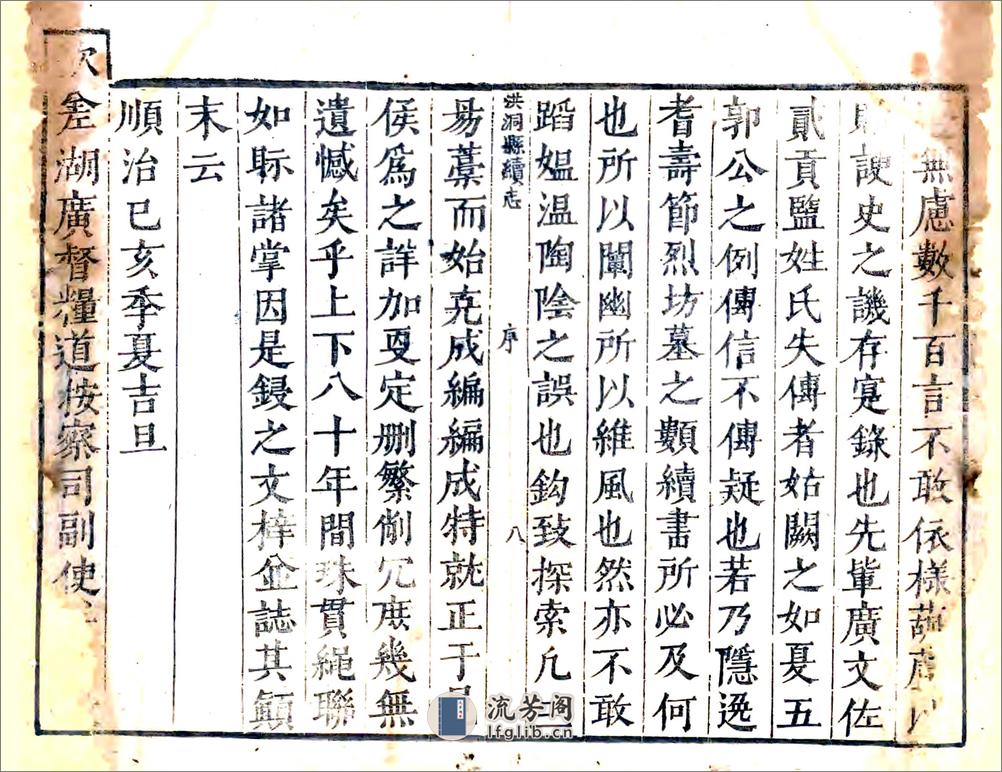 無慮數千百言不敢依樣葫蘆以
諛史之譏存寔錄也先軰廣文佐
貳貢監姓氏失傳者姑闕之如夏五
郭公之例傳信不傳疑也若乃隱逸
耆壽節烈坊墓之類續書所必及何
也所以闡幽所以維風也然亦不敢
蹈媪温陶陰之誤也鈎致探索凢三
洪洞縣續志 序 八
易藁而始克成編編成特就正于
侯爲之詳加㪅定刪繁削冗庶幾無
遺憾矣乎上下八十年間珠貫繩聯
如眎諸掌因是鋟之文梓並誌其顛
末云
順治已亥季夏吉旦
欽差湖廣督糧道按察司副使
流芳阁
lfglib.cn